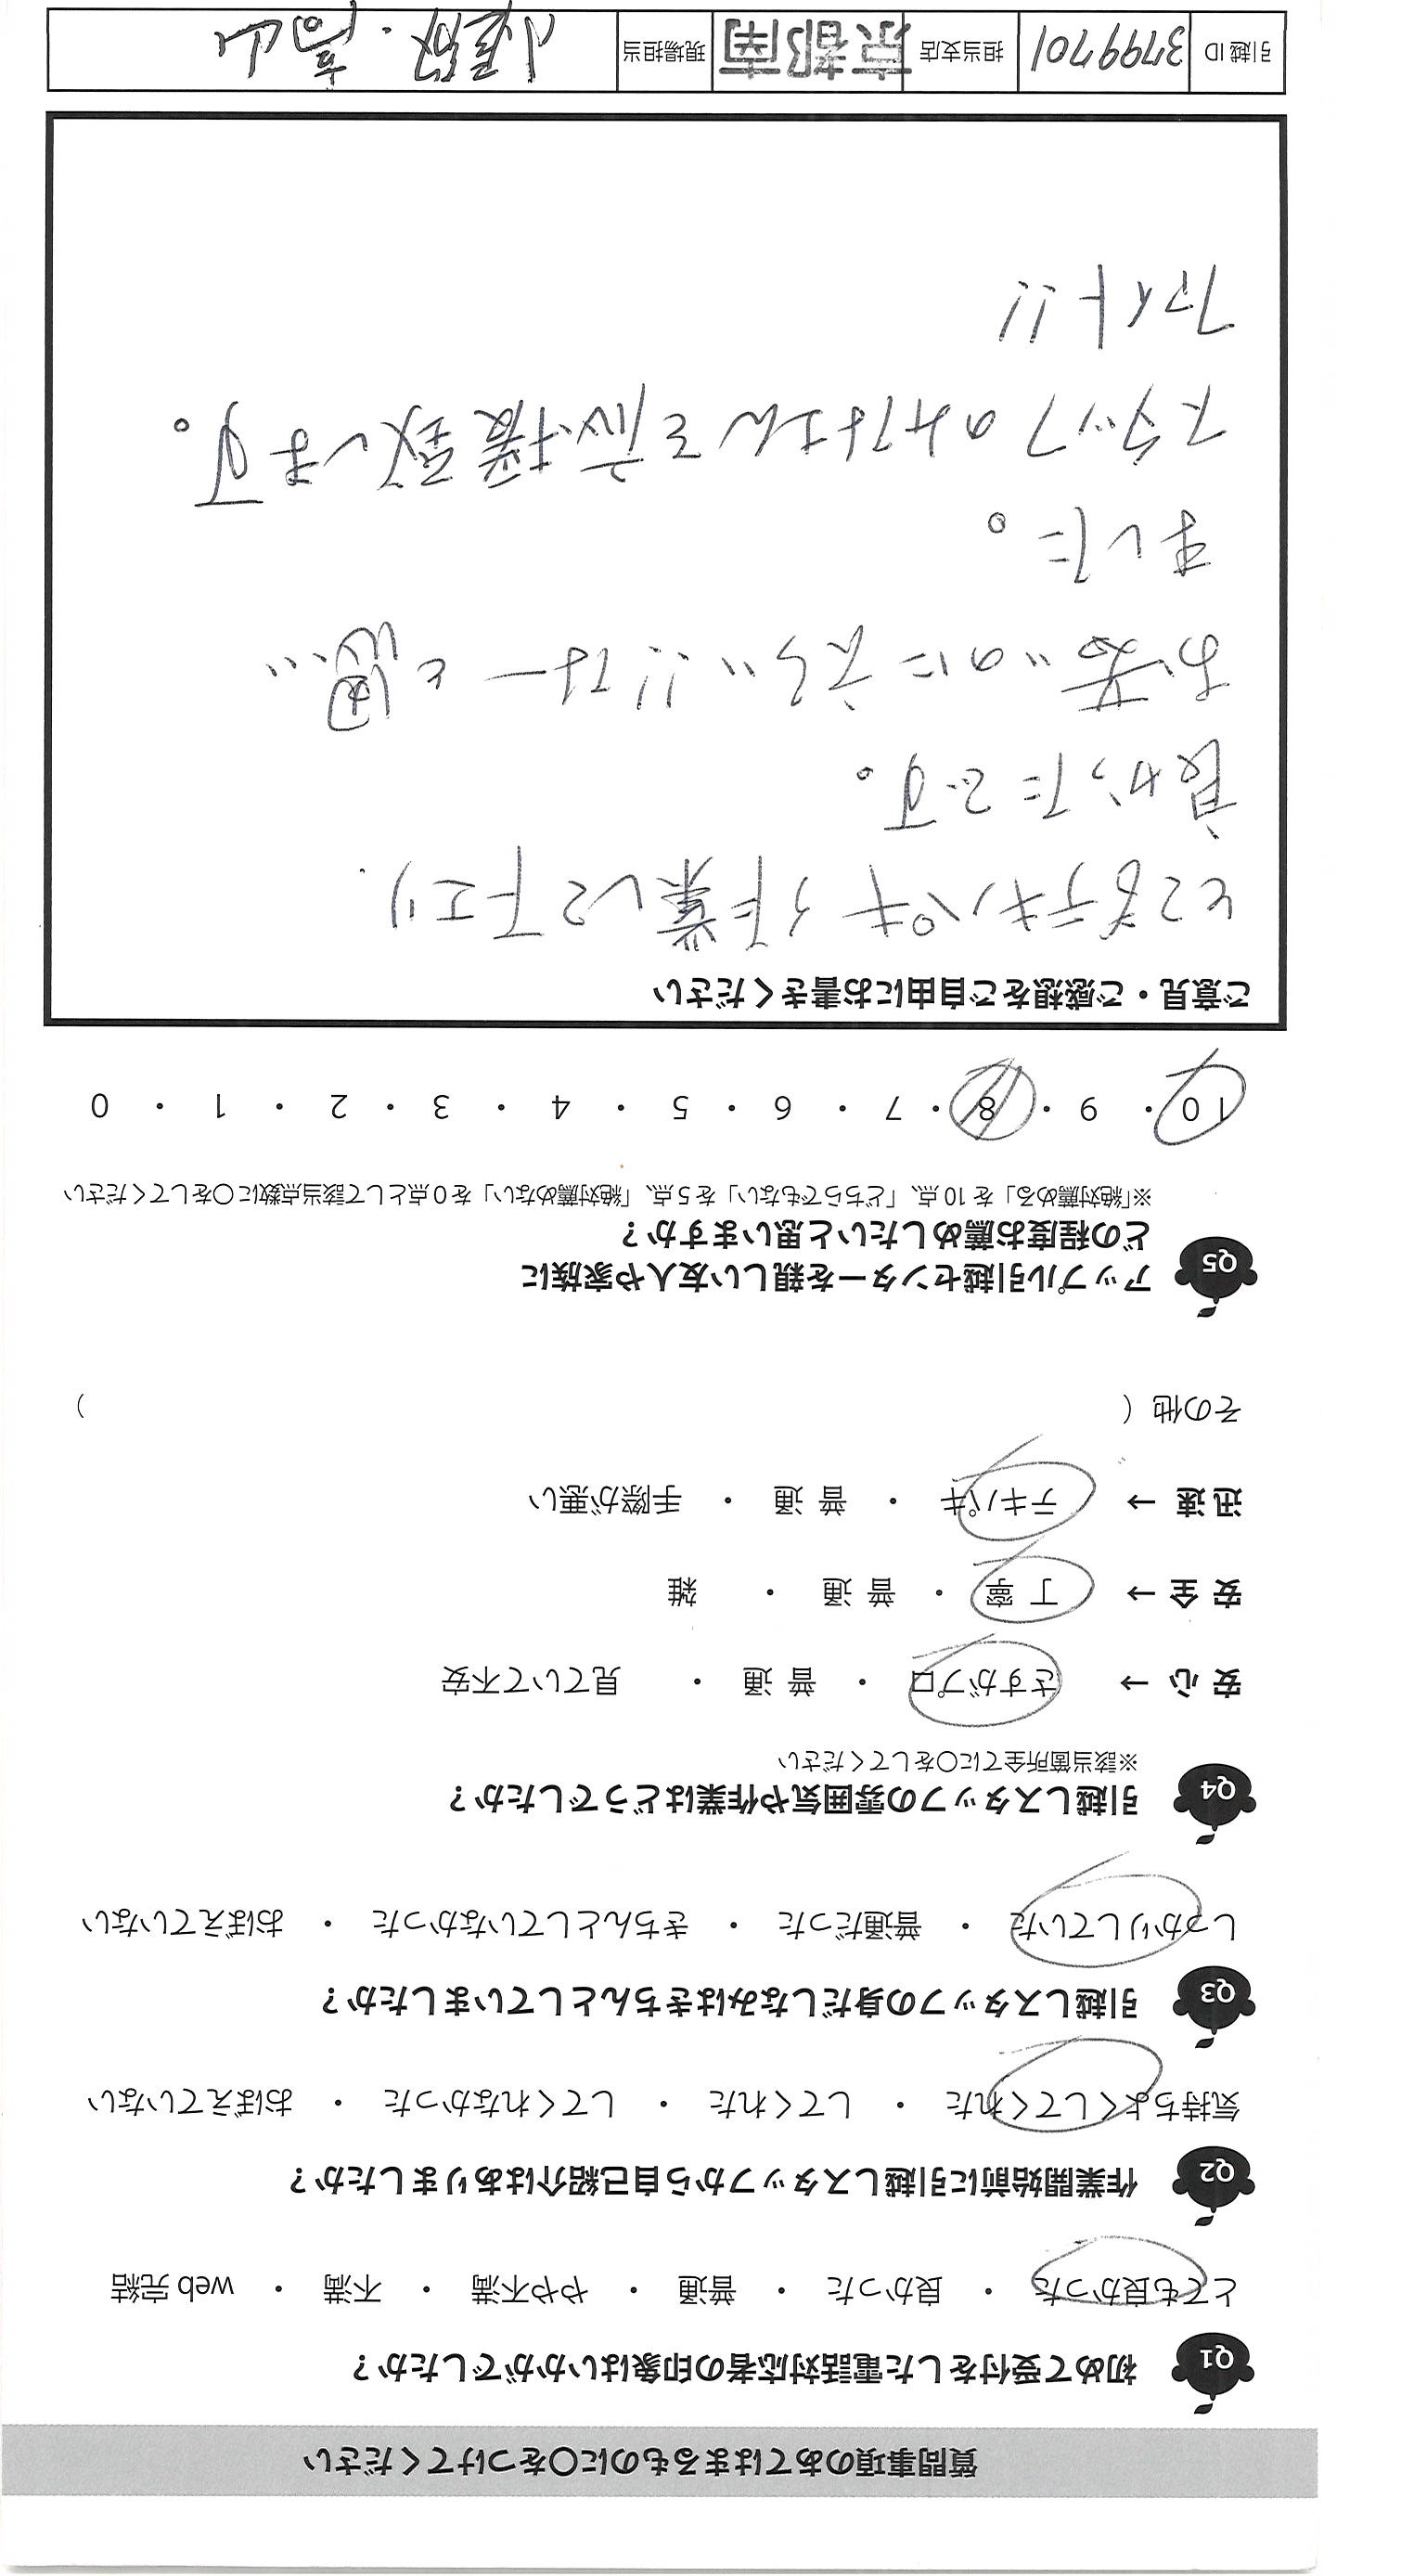 質問事項のあてはまるものに〇をつけてください
Q1 初めて受付をした電話対応者の印象はいかがでしたか？
とても良かった ・ 良かった ・ 普通 ・ やや不満 ・ 不満 ・ web 完結
Q2 作業開始前に引越しスタッフから自己紹介はありましたか？
気持ちよくしてくれた ・ してくれた ・ してくれなかった ・ おぼえていない
Q3 引越しスタッフの身だしなみはきちんとしていましたか？
しっかりしていた ・ 普通だった ・ きちんとしていなかった ・ おぼえていない
Q4 引越しスタッフの雰囲気や作業はどうでしたか？
※該当箇所全てに〇をしてください
安 心 → さすがプロ ・ 普 通 ・ 見ていて不安
安 全 → 丁 寧 ・ 普 通 ・ 雑
迅 速 → テキパキ ・ 普 通 ・ 手際が悪い
その他（ ）
Q5 アップル引越センターを親しい友人や家族に
どの程度お薦めしたいと思いますか？
※「絶対薦める」を 10 点、「どちらでもない」を 5 点、「絶対薦めない」を 0 点として該当点数に〇をしてください
10 ・ 9 ・ 8 ・ 7 ・ 6 ・ 5 ・ 4 ・ 3 ・ 2 ・ 1 ・ 0
ご意見・ご感想をご自由にお書きください
とてもテキパキ作業して下エリ
良かったです。
お若いのにえらい!!なーと思い
ました。
スタッフのみなさんを応援致します。
ファイト!!
引越 ID 3799701 担当支店 京都南 現場担当 ・高山